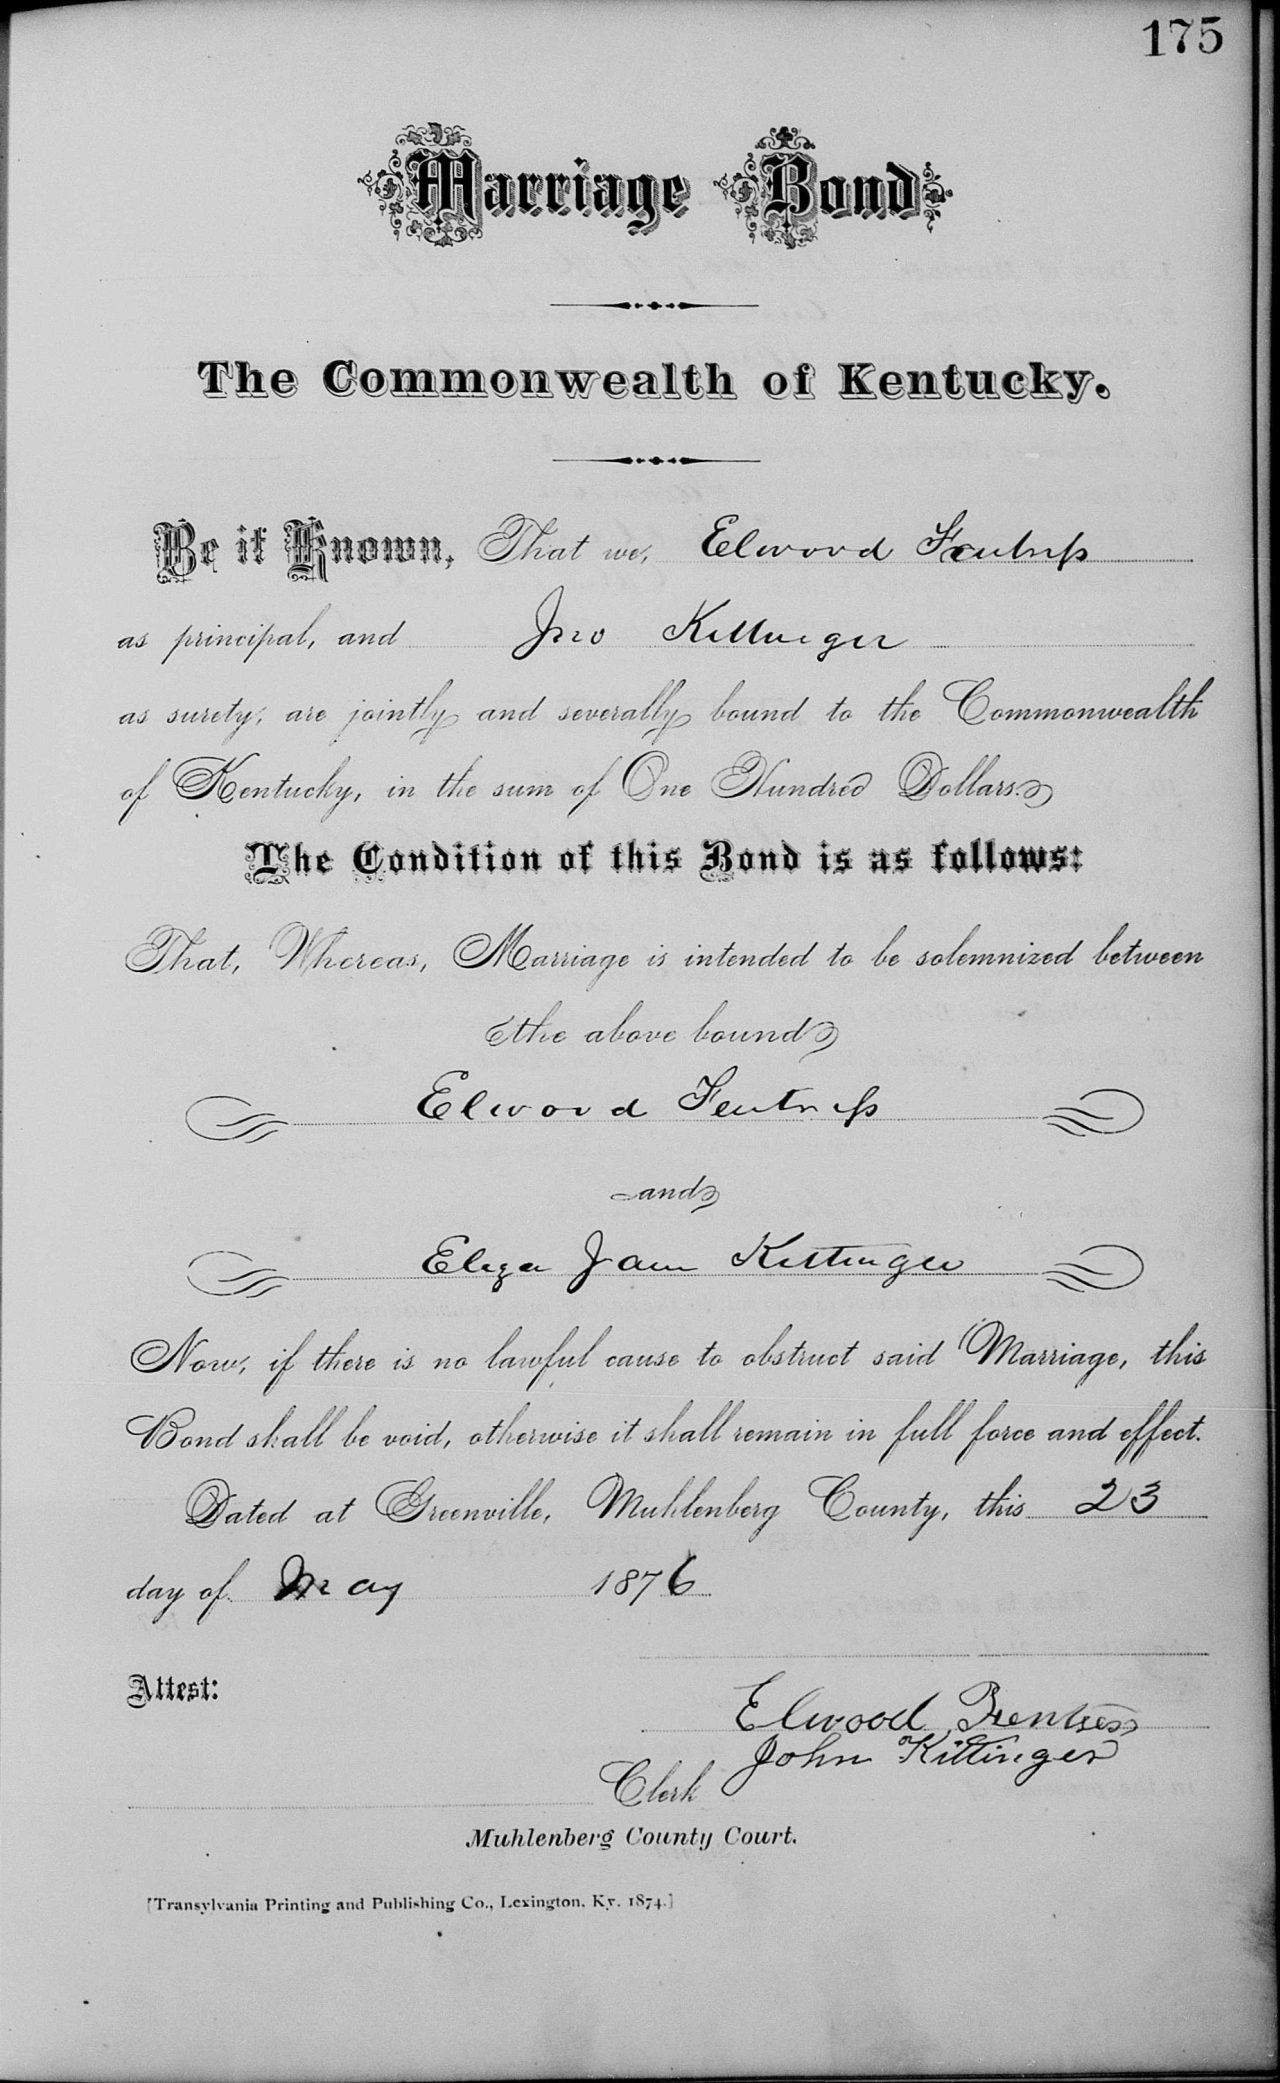 175
Marriage Bond
The Commonwealth of Kentucky.
Be it Known, That we, Elwood Fentress
as principal, and Jno Kittinger
as surety, are jointly and severally bound to the Commonwealth
of Kentucky, in the sum of One Hundred Dollars.
The Condition of this Bond is as follows:
That, Whereas, Marriage is intended to be solemnized between
the above bound
Elwood Fentress
and
Eliza Jane Kittinger
Now, if there is no lawful cause to obstruct said Marriage, this
Bond shall be void, otherwise it shall remain in full force and effect.
Dated at Greenville, Muhlenberg County, this 23
day of May 1876
Attest:
Elwood Frentress
John Kittinger
Clerk
Muhlenberg County Court.
[Transylvania Printing and Publishing Co., Lexington, Ky. 1874.]